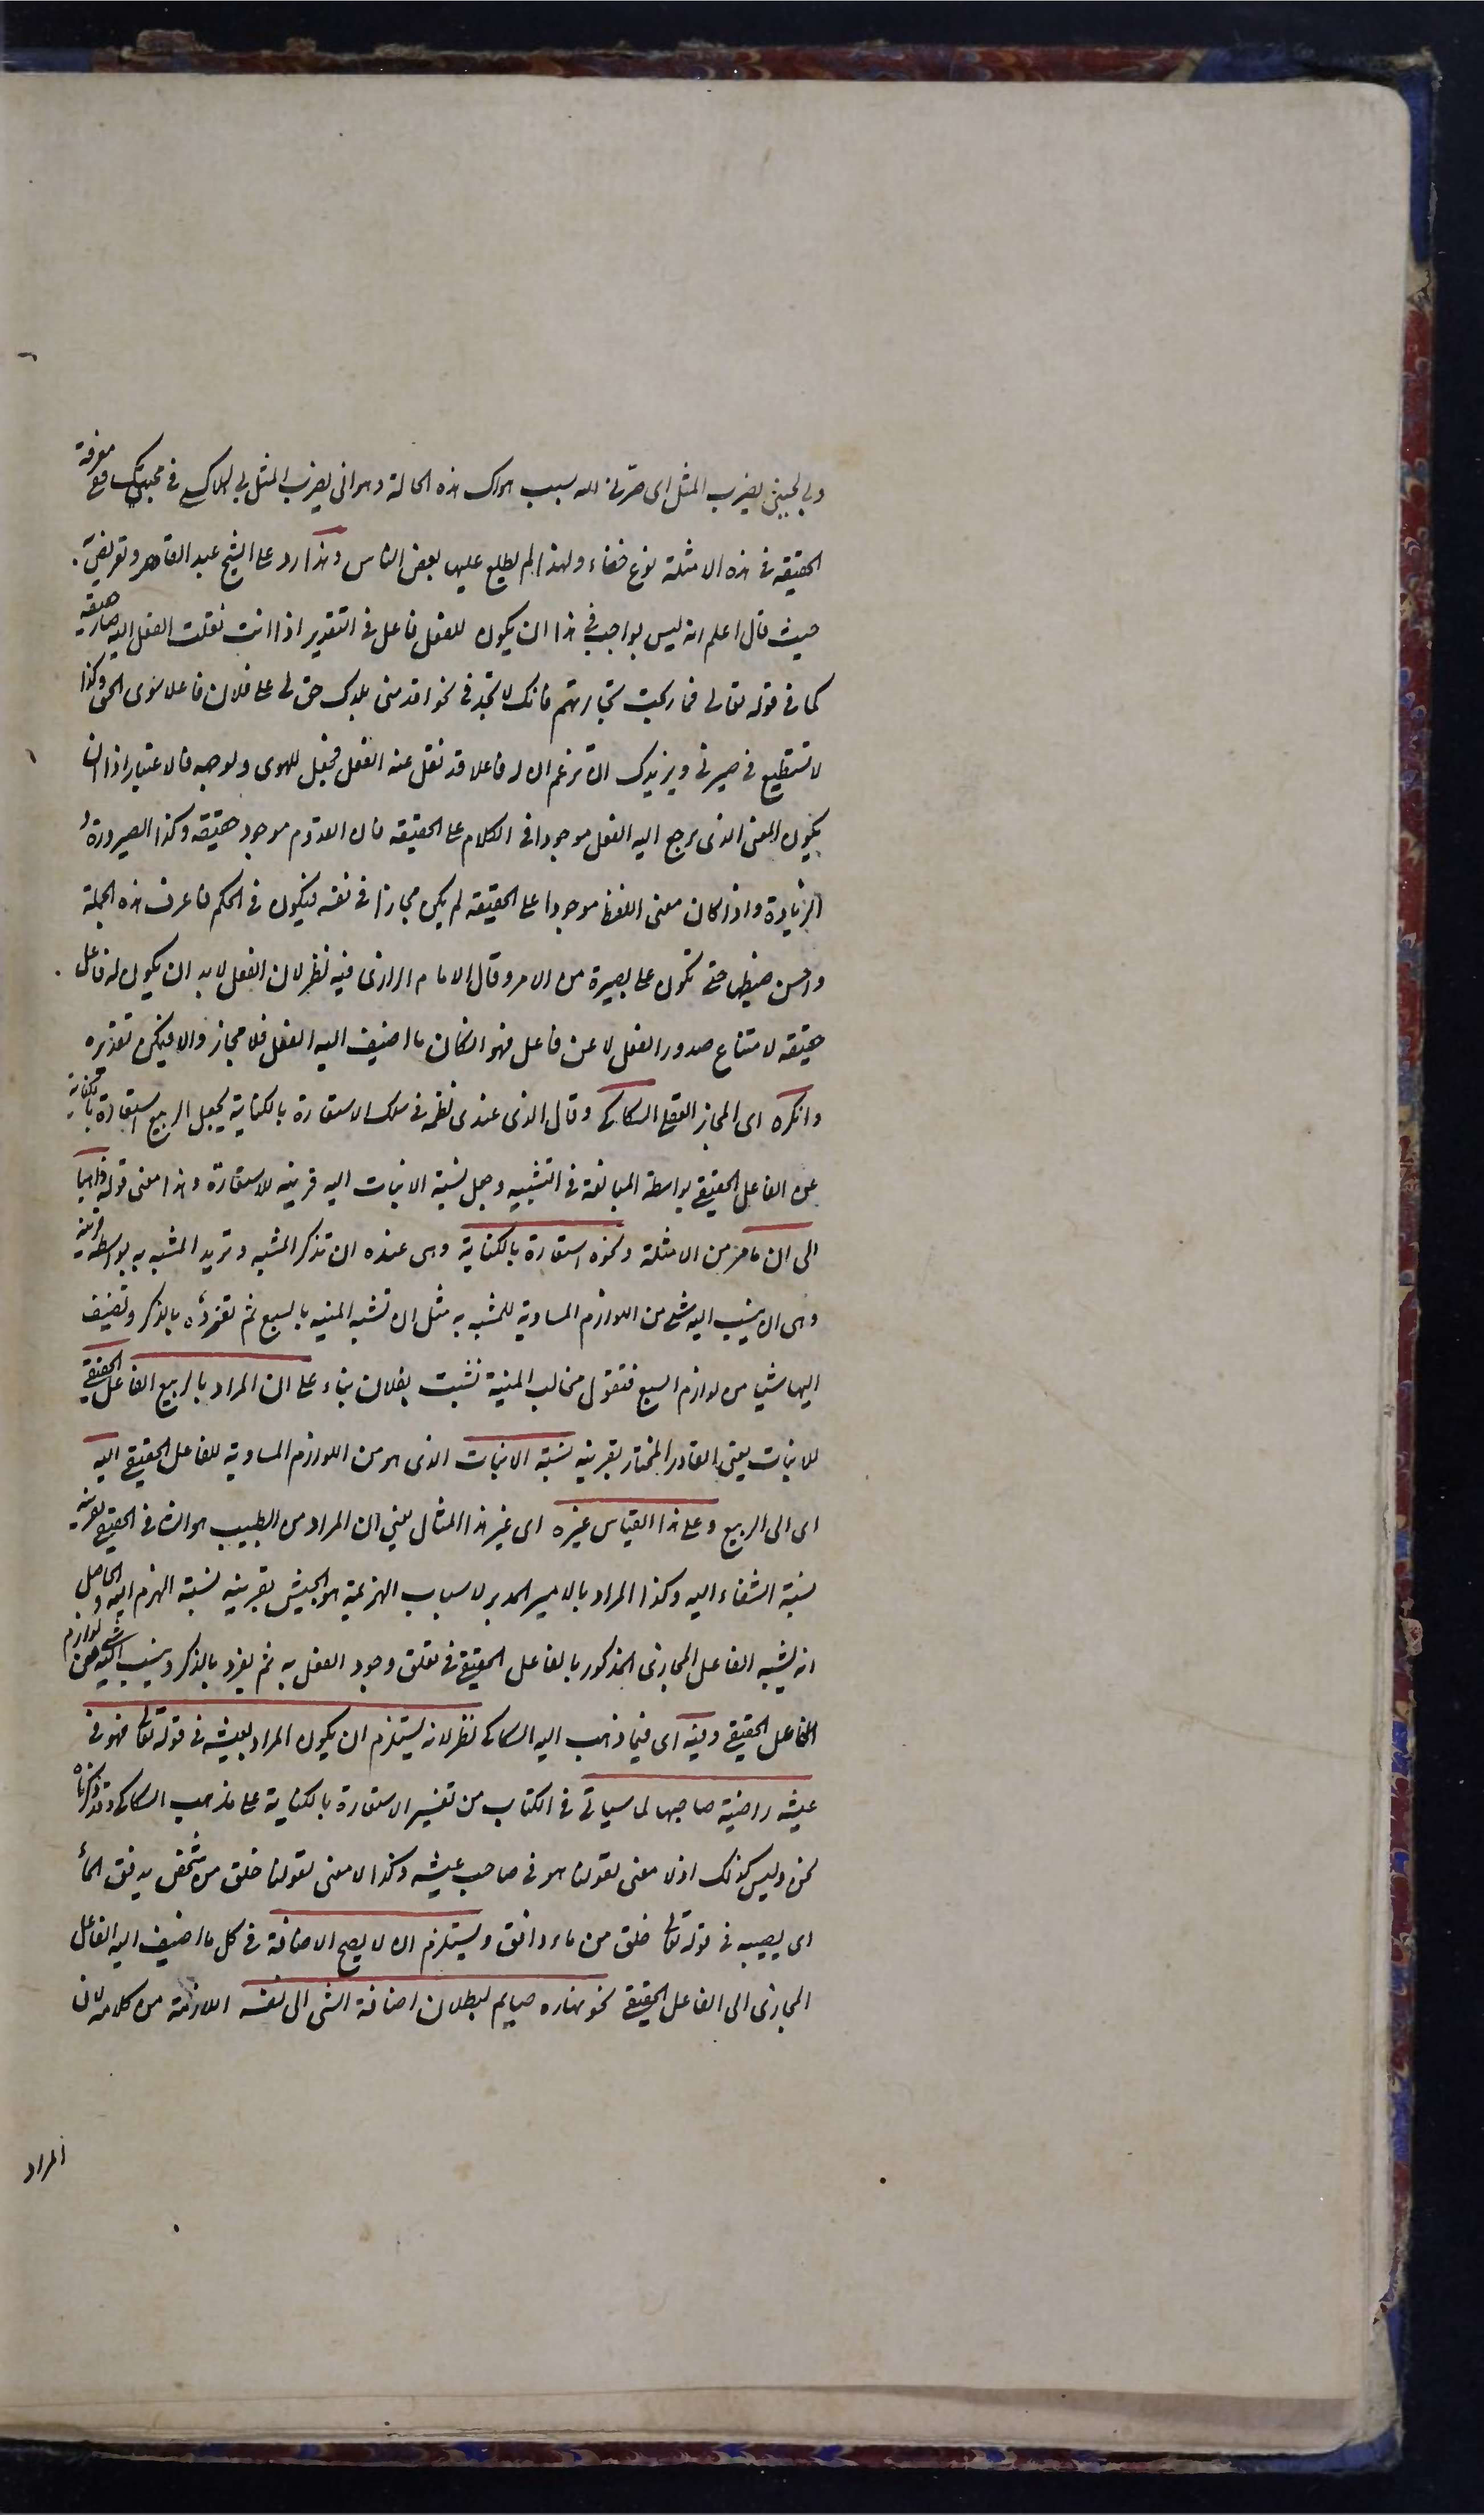 وبي لحيني يضرب المثل اى صيرنى الله بسبب هواك هذه الحالة وهو انى يضرب المثل بى لهلاكى فى محبتك فمعرفة
الحقيقة فى هذه الامثلة نوع خفاء ولهذا لم يطلع عليها بعض الناس وهذا رد على الشيخ عبد القاهر وتعريض به
حيث قال اعلم انه ليس بواجب فى هذا ان يكون للفعل فاعل فى التقدير اذا انت نقلت الفعل اليه صار حقيقة
كما فى قوله تعالى فما ربحت تجارتهم فانك لا تجد فى نحو اقدمنى بلدك حق لى على فلان فاعلا سوى الحق وكذا
لا تستطيع فى صيرنى ويزيدك ان تزعم ان له فاعلا قد نقل عنه الفعل فجعل للهوى ولوجهه فالاعتبار اذا ان
يكون المعنى الذى يرجع اليه الفعل موجودا فى الكلام على الحقيقة فان القدوم موجود حقيقة وكذا الصيرورة و
الزيادة واذا كان معنى اللفظ موجودا على الحقيقة لم يكن مجازا فى نفسه فيكون فى الحكم فاعرف هذه الجملة
واحسن ضبطها حتى تكون على بصيرة من الامر وقال الامام الرازى فيه نظر لان الفعل لابد ان يكون له فاعل
حقيقة لامتناع صدور الفعل لا عن فاعل فهو ان كان ما اضيف اليه الفعل فلا مجاز والا فيمكن تقديره
وانكره اى المجاز العقلى السكاكى وقال الذى عندى نظمه فى سلك الاستعارة بالكناية بجعل الربيع استعارة بالكناية
عن الفاعل الحقيقى بواسطة المبالغة فى التشبيه وجعل نسبة الانبات اليه قرينة للاستعارة وهذا معنى قوله ذاهبا
الى ان ما مر من الامثلة ونحوه استعارة بالكناية وهى عنده ان تذكر المشبه وتريد المشبه به بواسطة قرينة
وهى ان ينسب اليه شئ من اللوازم المساوية للمشبه به مثل ان تشبه المنية بالسبع ثم تفرده بالذكر وتضيف
اليها شيئا من لوازم السبع فتقول مخالب المنية نشبت بفلان بناء على ان المراد بالربيع الفاعل الحقيقى
للانبات يعنى القادر المختار بقرينة نسبة الانبات الذى هو من اللوازم المساوية للفاعل الحقيقى اليه
اى الى الربيع وعلى هذا القياس غيره اى غير هذا المثال يعنى ان المراد من الطبيب هو الشافى الحقيقى بقرينة
نسبة الشفاء اليه وكذا المراد بالامير المدبر لاسباب الهزيمة هو الجيش بقرينة نسبة الهزم اليه والحاصل
انه يشبه الفاعل المجازى المذكور بالفاعل الحقيقى فى تعلق وجود الفعل به ثم يفرد بالذكر وينسب اليه شئ من لوازم
الفاعل الحقيقى وفيه اى فيما ذهب اليه السكاكى نظر لانه يستلزم ان يكون المراد بعيشة فى قوله تعالى فهو فى
عيشة راضية صاحبها لما سيأتى فى الكتاب من تفسير الاستعارة بالكناية على مذهب السكاكى وقد ذكرناه
نحن وليس كذلك اذ لا معنى لقولنا هو فى صاحب عيشة وكذا لا معنى لقولنا خلق من شخص يدفق الماء
اى يصيبه فى قوله تعالى خلق من ماء دافق ويستلزم ان لا يصح الاضافة فى كل ما اضيف اليه الفاعل
المجازى الى الفاعل الحقيقى نحو نهاره صايم لبطلان اضافة الشئ الى نفسه اللازمة من كلامه لان
المراد